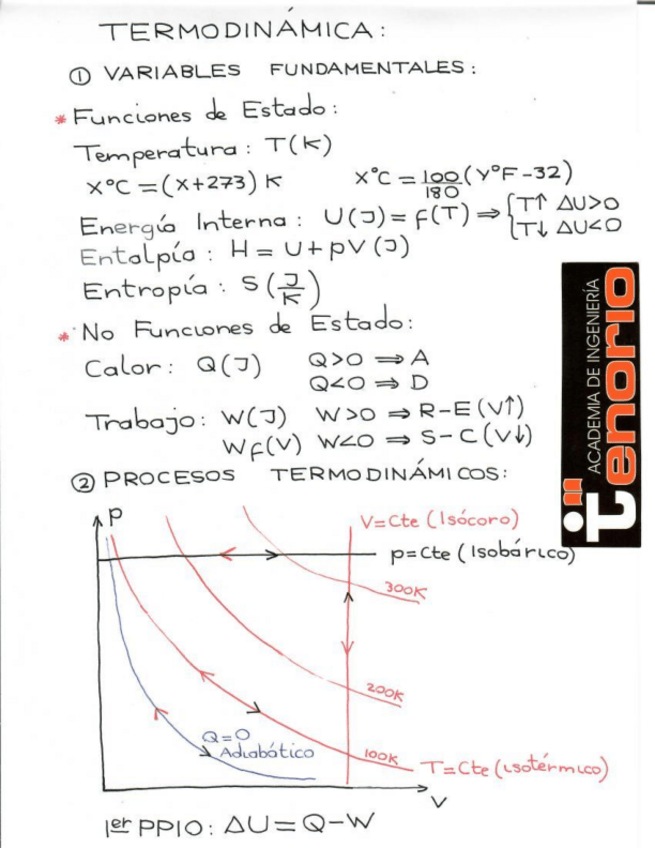 TERMODINÁMICA:
① VARIABLES FUNDAMENTALES:
* Funciones de Estado:
Temperatura: T(K)
X°C = (X+273) K X°C = 100/180 (Y°F-32)
Energía Interna: U(J) = f(T) ⇒ { T↑ ΔU>0
T↓ ΔU<0
Entalpía: H = U + pV (J)
Entropía: S (J/K)
* No Funciones de Estado:
Calor: Q(J) Q>0 ⇒ A
Q<0 ⇒ D
Trabajo: W(J) W>0 ⇒ R-E (V↑)
Wf(V) W<0 ⇒ S-C (V↓)
② PROCESOS TERMODINÁMICOS:
p
V=Cte (Isócoro)
p=Cte (Isobárico)
300K
200K
Q=0
Adiabático
100K
T=Cte (isotérmico)
V
1er PPIO: ΔU = Q-W
ACADEMIA DE INGENIERÍA
Tenorio